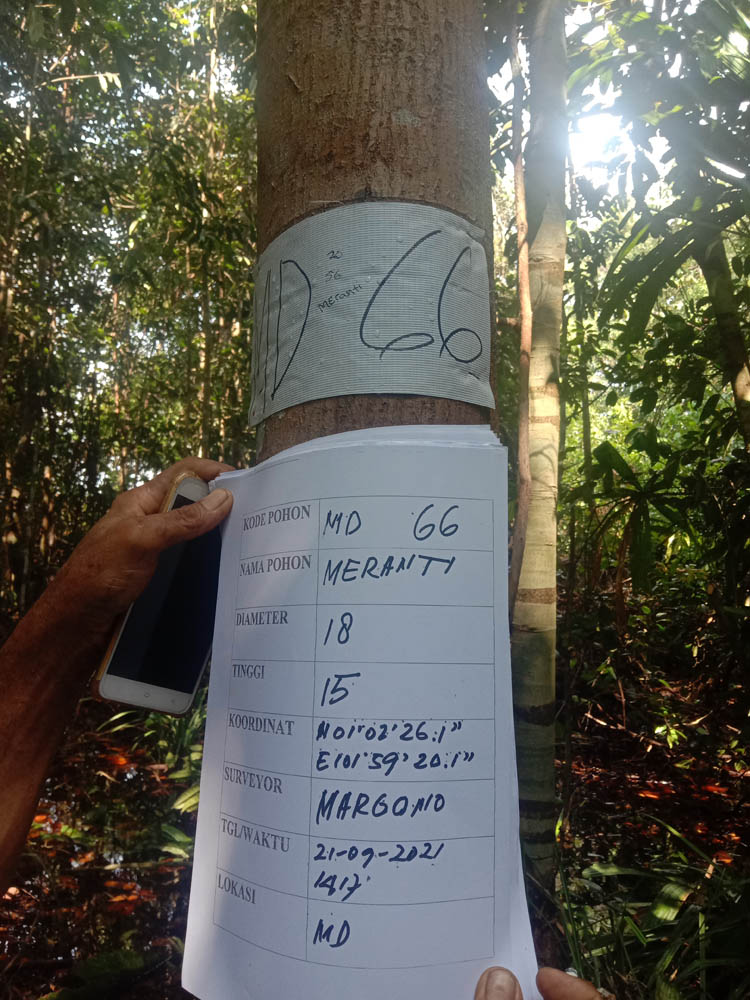 MD 66
20
56
Meranti
KODE POHON MD 66
NAMA POHON MERANTI
DIAMETER 18
TINGGI 15
KOORDINAT N01°02'26.1"
E101°59'20.1"
SURVEYOR MARGONO
TGL/WAKTU 21-09-2021
14:17
LOKASI MD